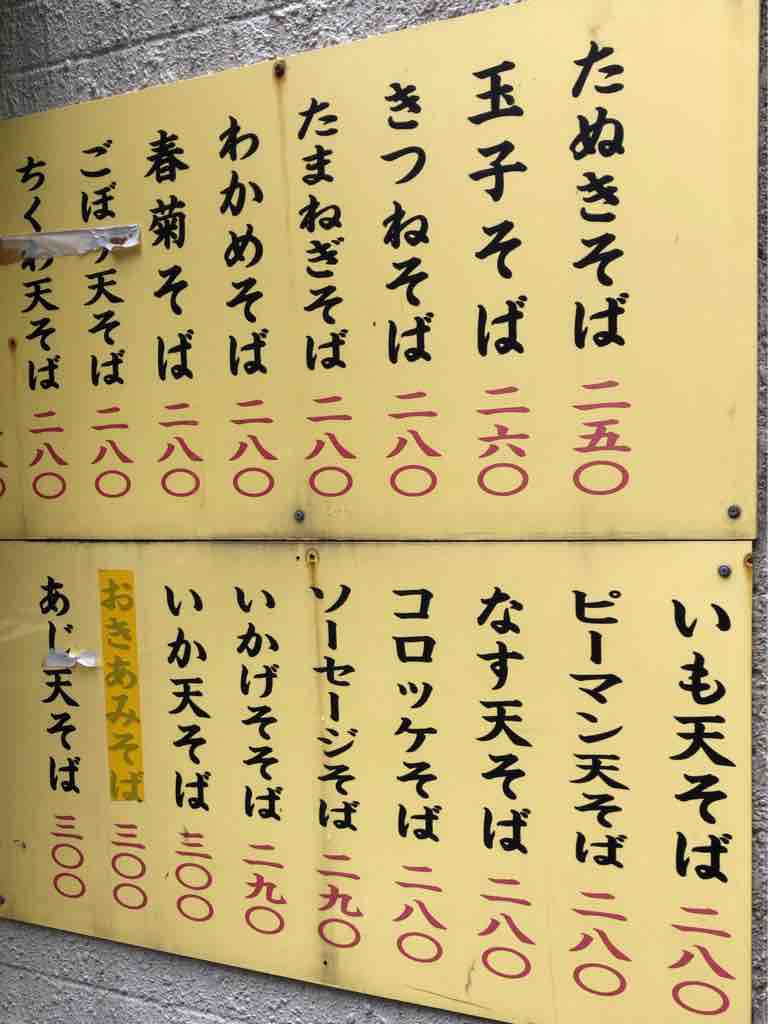 たぬきそば 二五〇
玉子そば 二六〇
きつねそば 二八〇
たまねぎそば 二八〇
わかめそば 二八〇
春菊そば 二八〇
ごぼう天そば 二八〇
ちくわ天そば 二八〇
いも天そば 二八〇
ピーマン天そば 二八〇
なす天そば 二八〇
コロッケそば 二八〇
ソーセージそば 二九〇
いかげそそば 二九〇
いか天そば 三〇〇
おきあみそば 三〇〇
あじ天そば 三〇〇